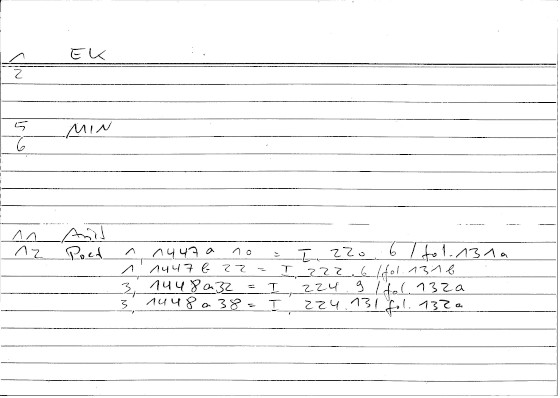 1 EK
2
5 MIN
6
11 Arist
12 Poet 1, 1447a 10 = I, 220. 6 / fol. 131a
1, 1447b 22 = I, 222. 6 / fol 131b
3, 1448a32 = I, 224 9 / fol. 132a
3, 1448a38 = I, 224.13 / fol. 132a